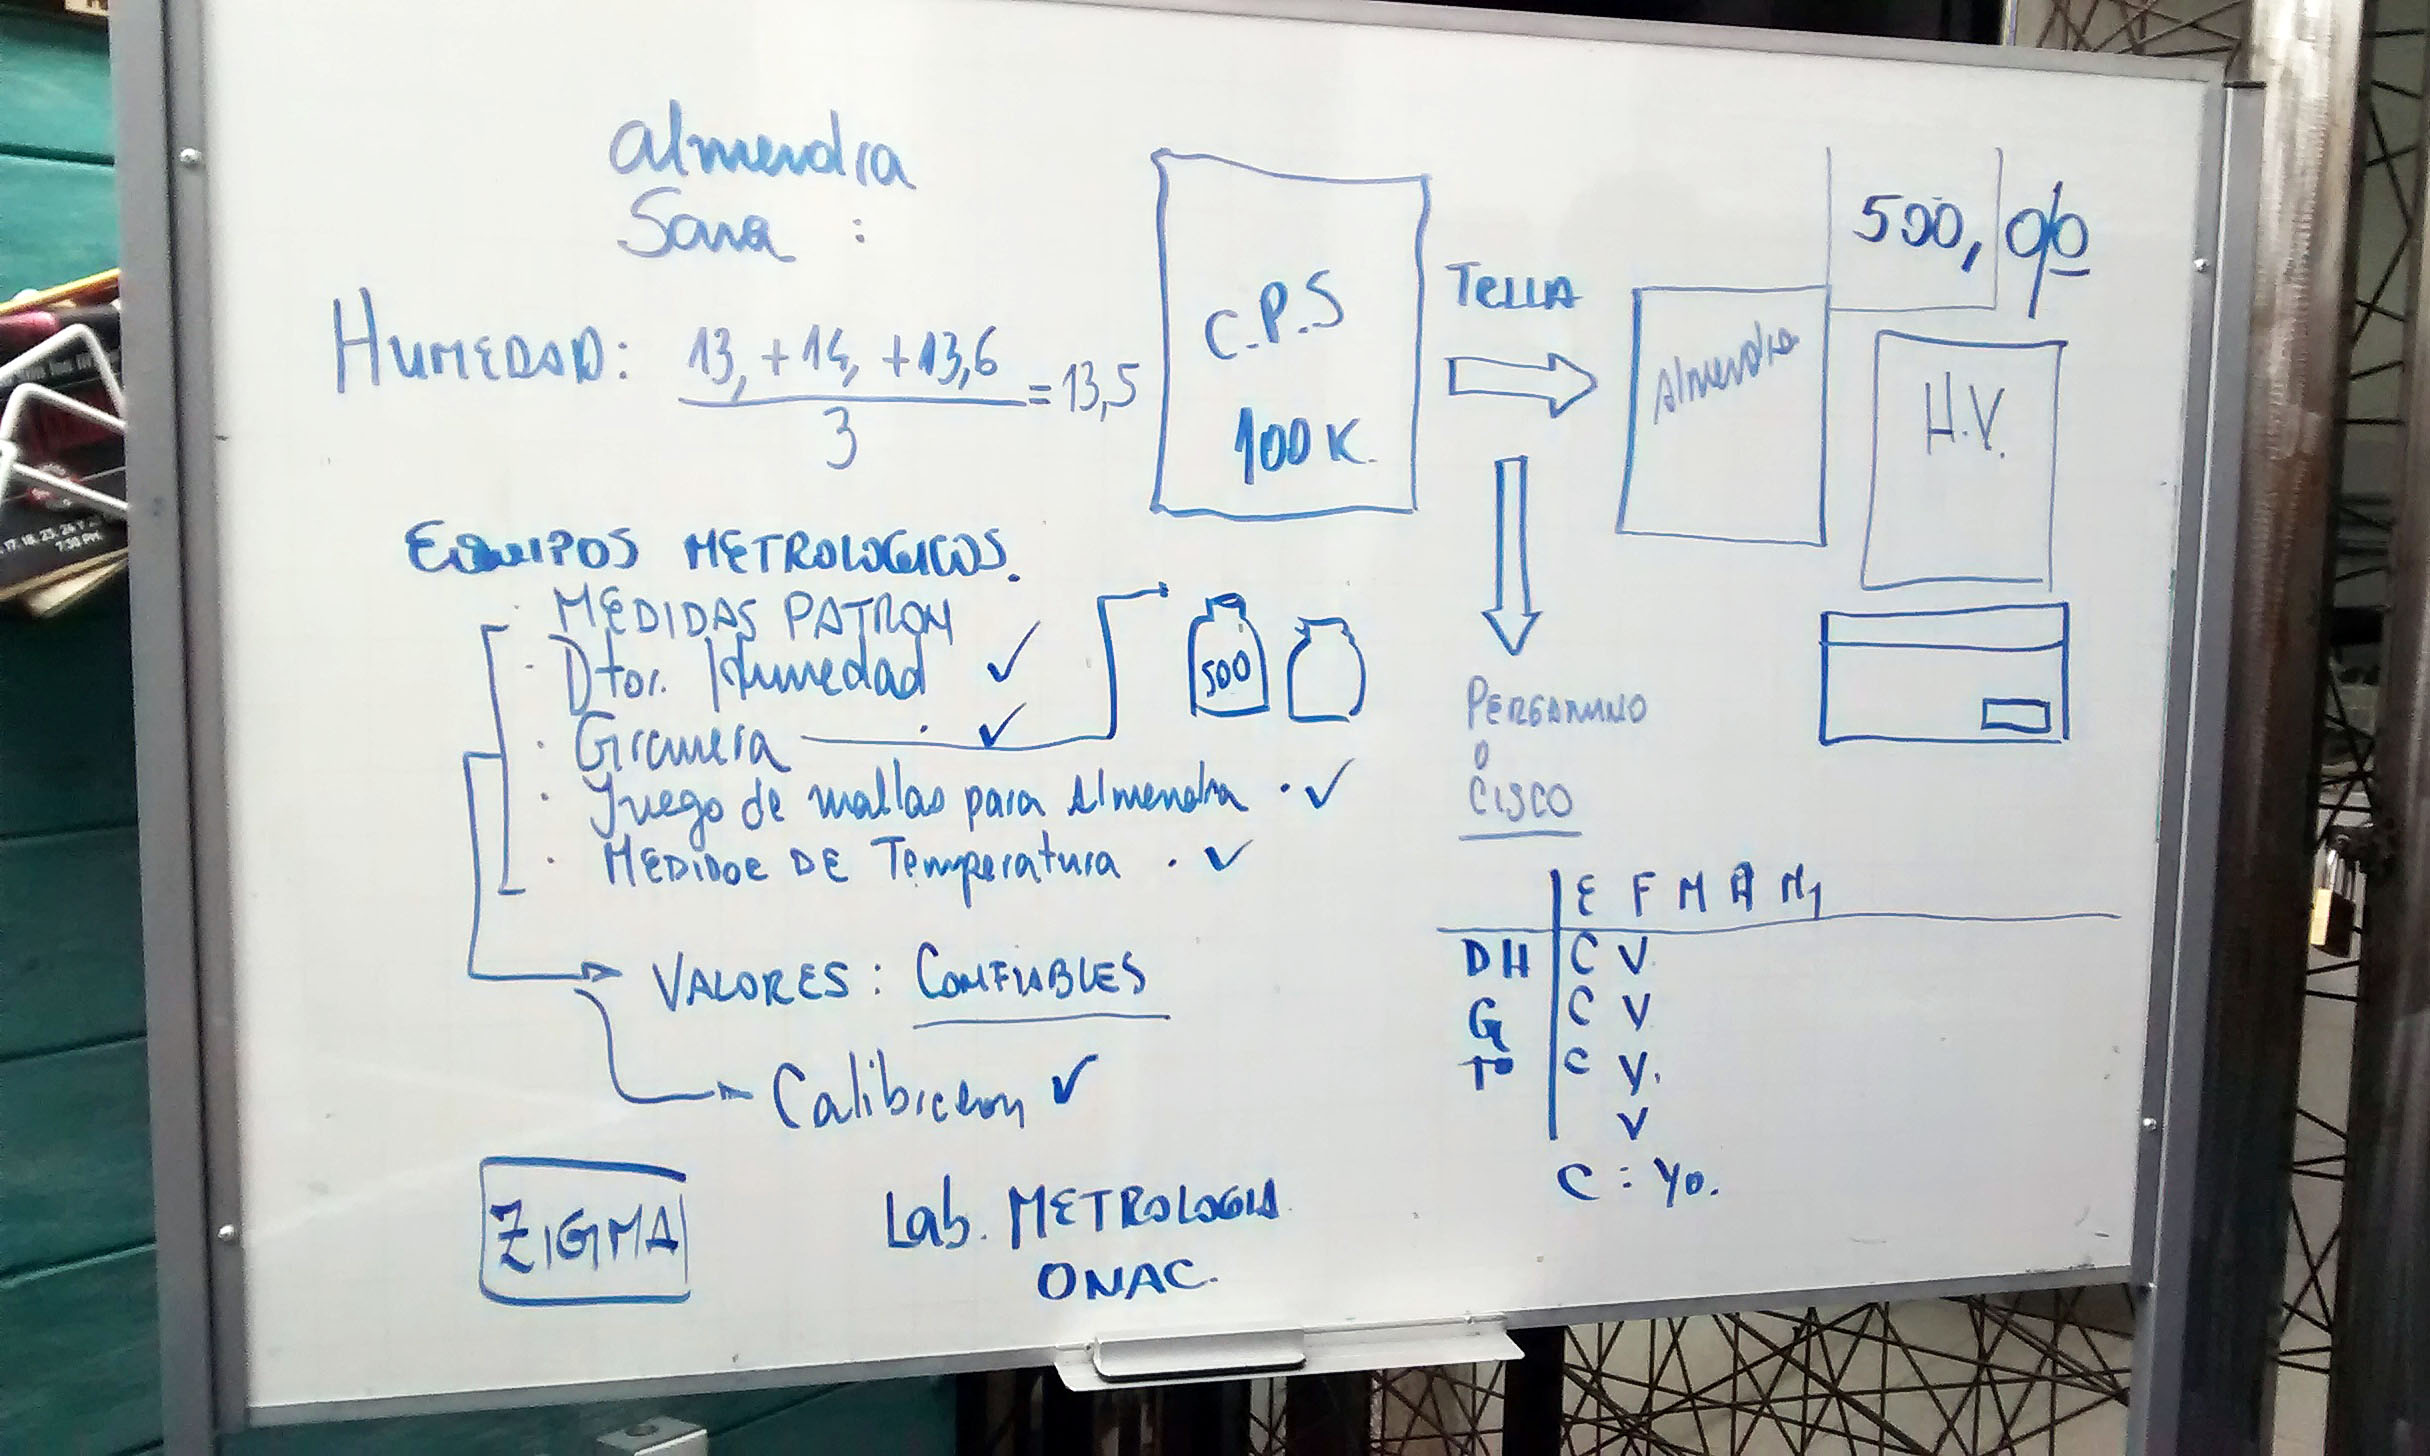 almendra
Sana :
HUMEDAD: 13, + 14, + 13,6 = 13,5
3
C.P.S
100 K.
TRILLA
Almendra
500, 00
H.V.
EQUIPOS METROLOGICOS.
MEDIDAS PATRON
· Dtor. Humedad ✓
· Gramera ✓
500
· Juego de mallas para Almendra · ✓
· MEDIDOR DE Temperatura · ✓
PERGAMINO
O
CISCO
VALORES : CONFIABLES
Calibracion ✓
E F M A M
DH C V.
G C V
T° C V.
V
C : Yo.
ZIGMA
Lab. METROLOGIA
ONAC.
17. 18. 23. 24 Y
7:30 PM.